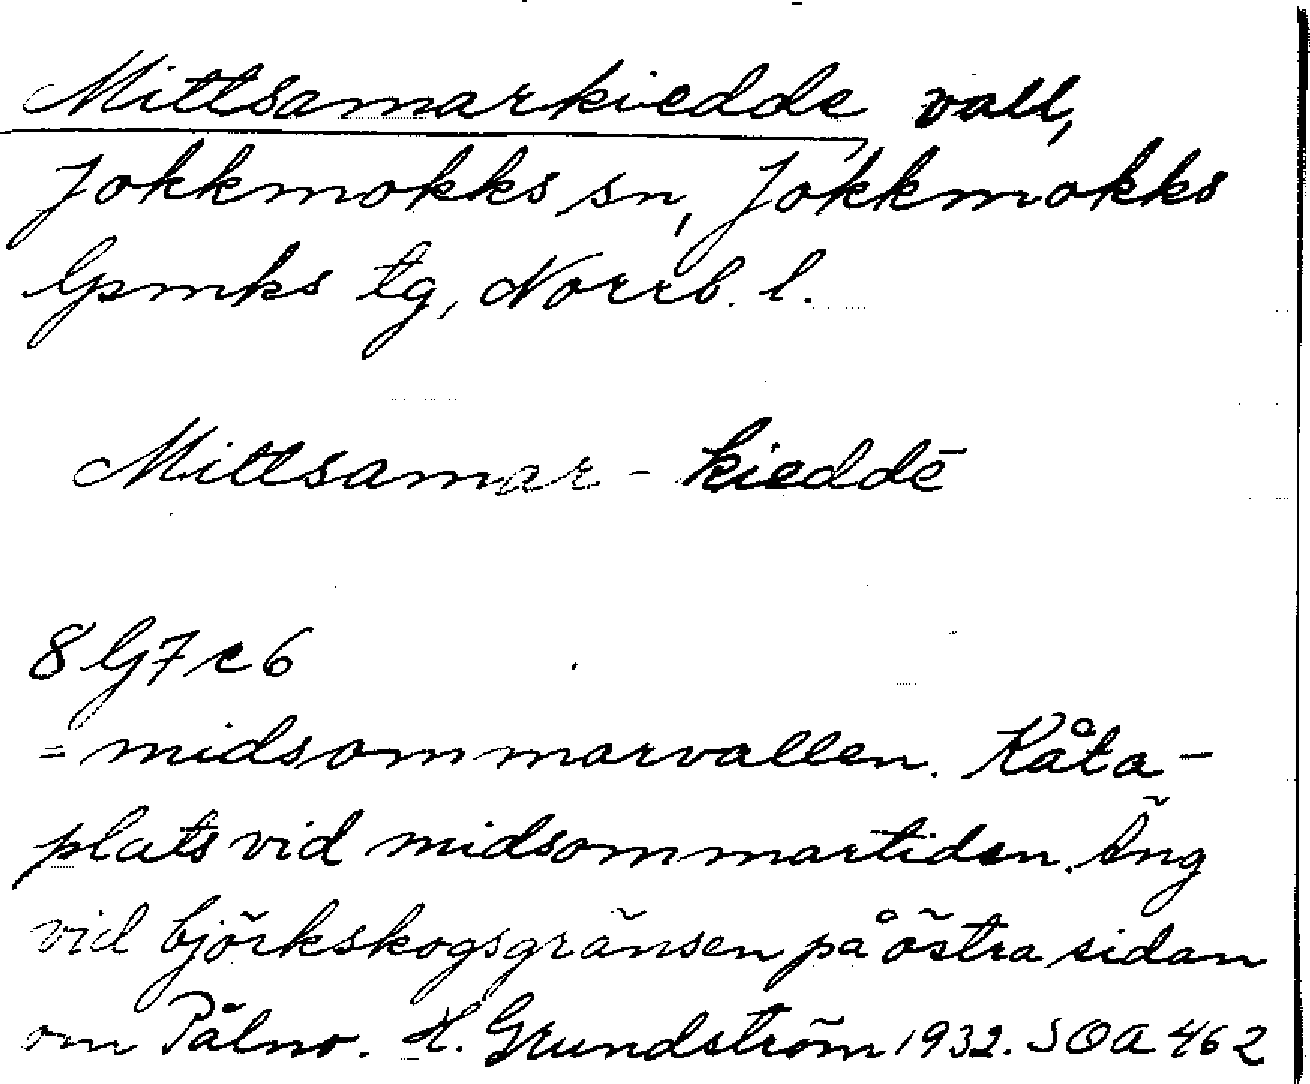 Mittsamarkiedde vall,
Jokkmokks sn, Jokkmokks
lpmks tg, Norrb. l.
Mittsamar - kieddē
8 G 7 c 6
= midsommarvallen. Kåta-
plats vid midsommartiden. Äng
vid björkskogsgränsen på östra sidan
om Pålno. H. Grundström 1932. SOA 462